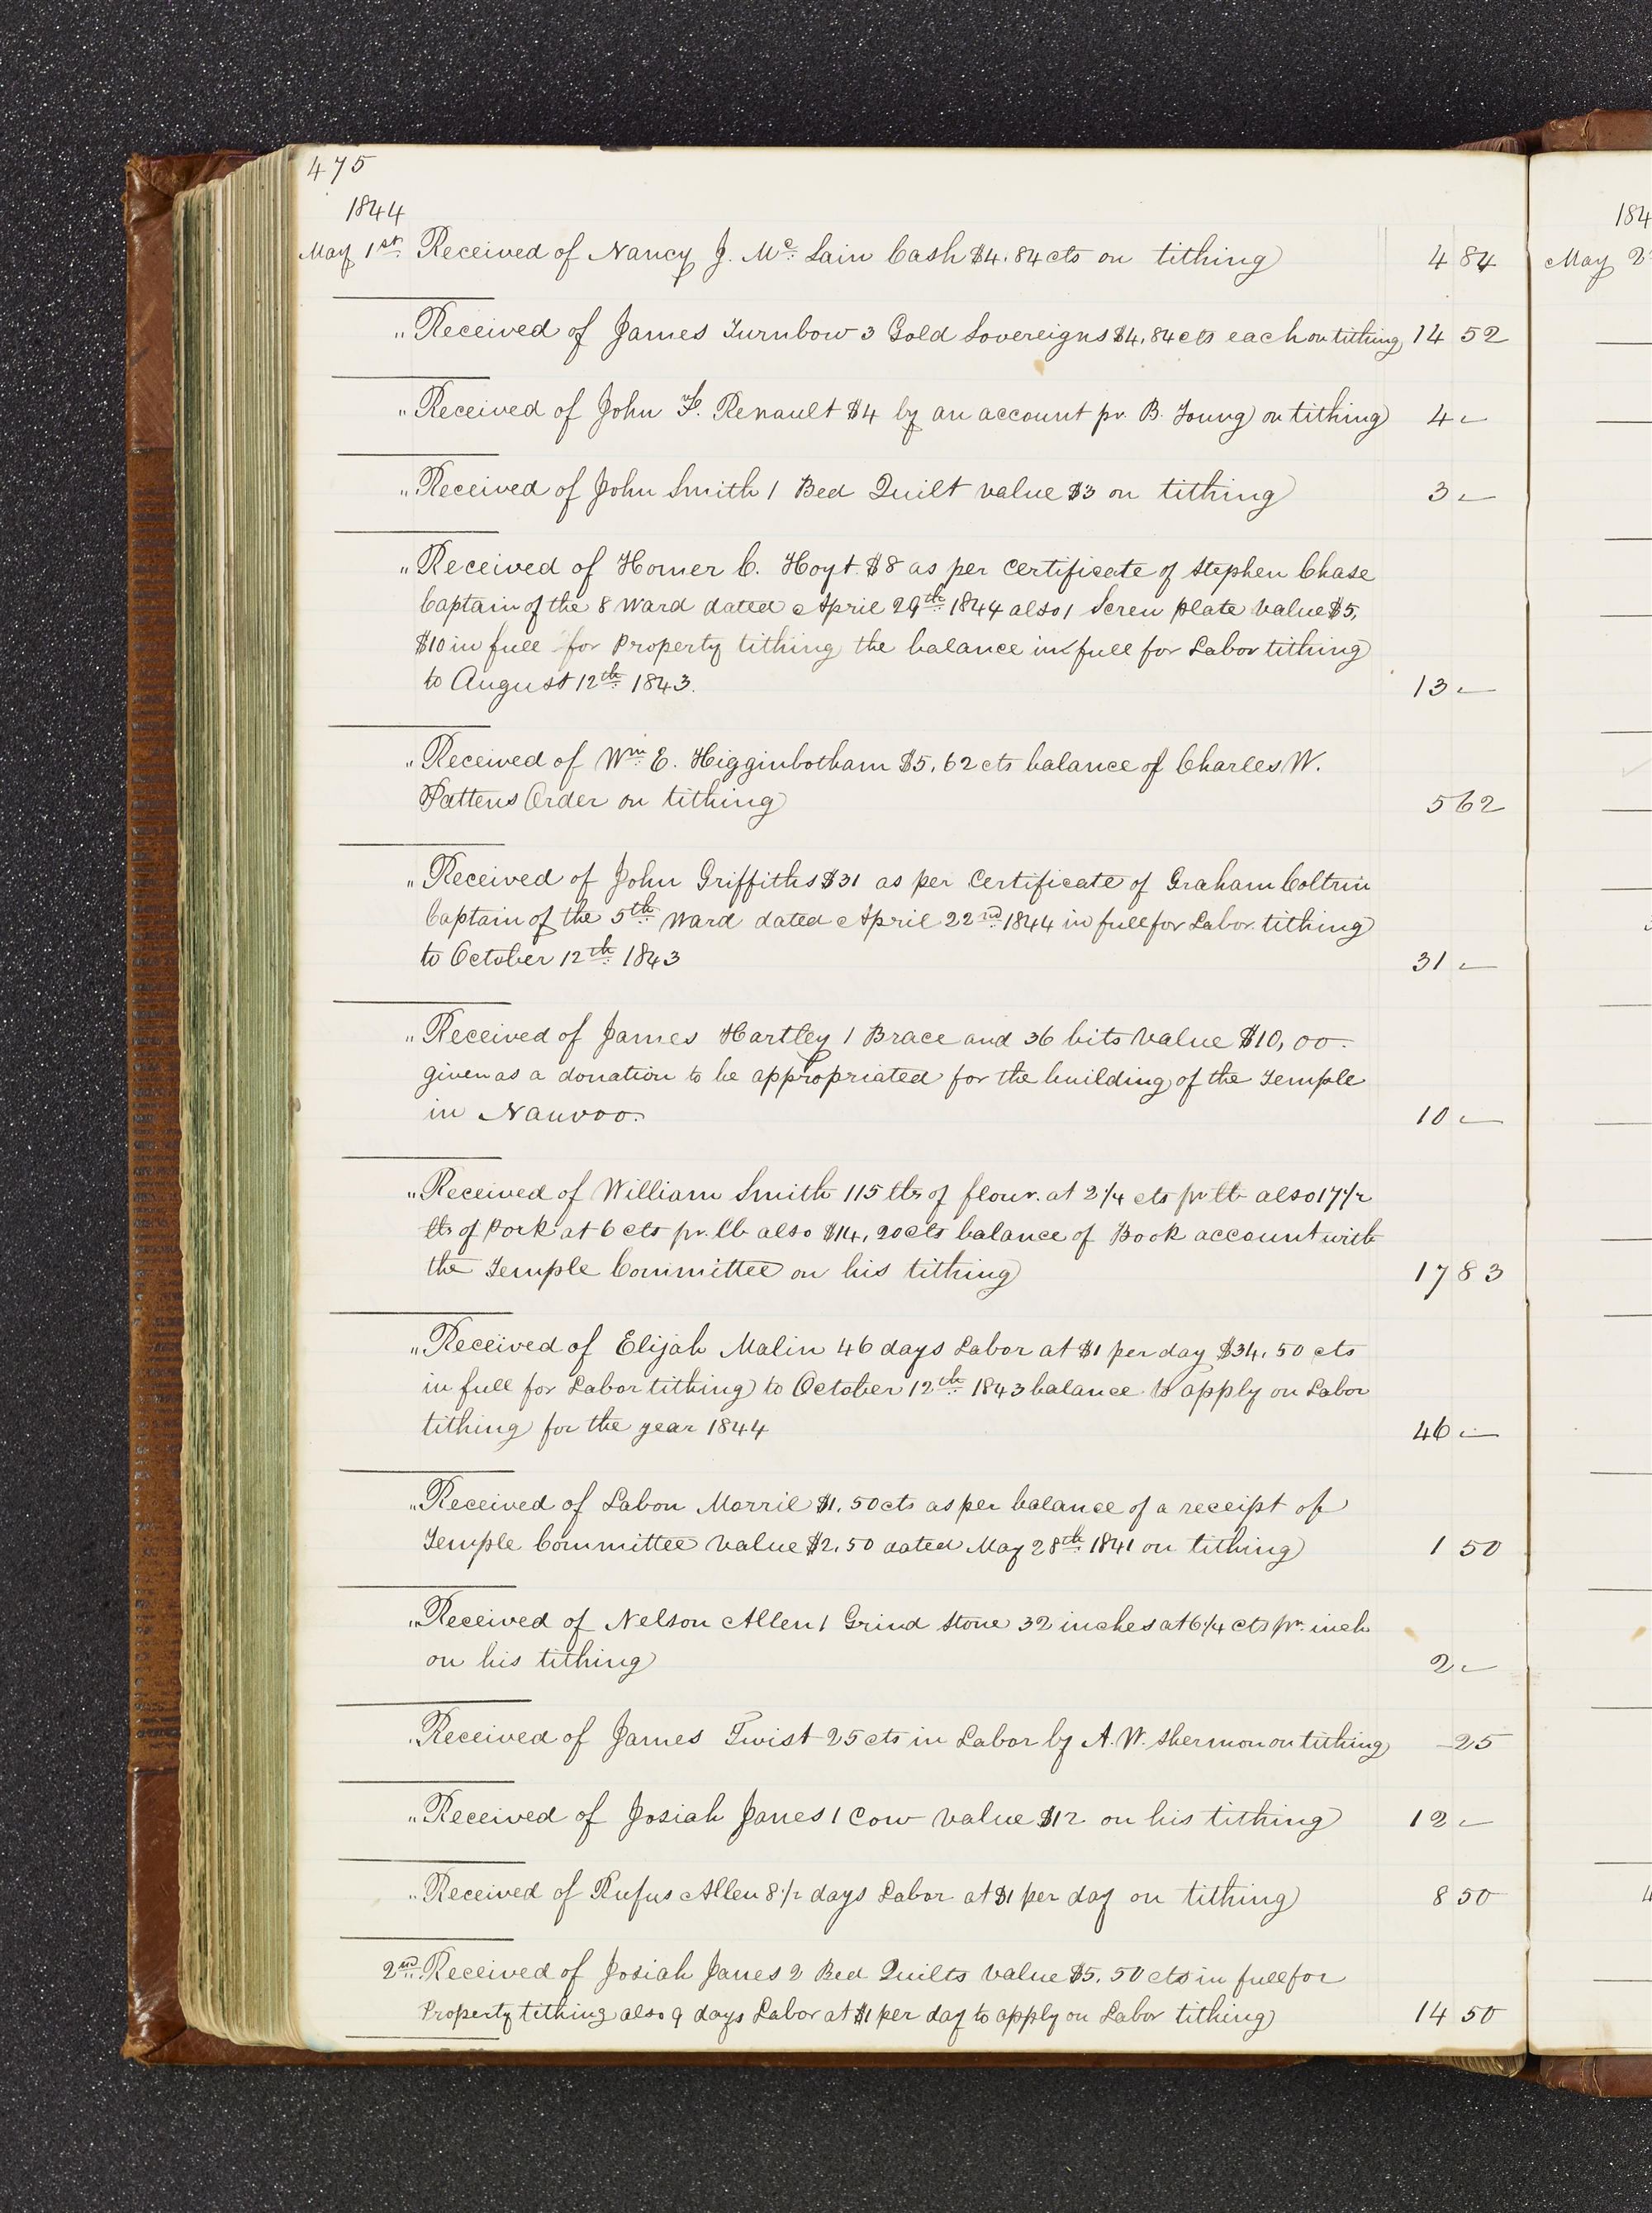 475
1844
May 1st. Received of Nancy J. Mc. Lain Cash $4.84 cts on tithing 4 84
" Received of James Turnbow 3 Gold Sovereigns $4,84 cts each on tithing 14 52
" Received of John F. Renault $4 by an account pr. B. Young on tithing 4 –
" Received of John Smith 1 Bed Quilt value $3 on tithing 3 –
" Received of Homer C. Hoyt $8 as per Certificate of Stephen Chase
Captain of the 8 Ward dated April 29th 1844 also 1 Screw plate value $5,
$10 in full for Property tithing the balance in full for Labor tithing
to August 12th 1843. 13 –
" Received of Wm. E. Higginbotham $5,62 cts balance of Charles W.
Pattens Order on tithing 5 62
" Received of John Griffiths $31 as per Certificate of Graham Coltrin
Captain of the 5th Ward dated April 22nd 1844 in full for Labor tithing
to October 12th 1843 31 –
" Received of James Hartley 1 Brace and 36 bits value $10,00
given as a donation to be appropriated for the building of the Temple
in Nauvoo. 10 –
" Received of William Smith 115 lbs of flour. at 2 1/4 cts pr lb also 17 1/2
lbs of Pork at 6 cts pr. lb also $14,20 cts balance of Book account with
the Temple Committee on his tithing 17 83
" Received of Elijah Malin 46 days Labor at $1 per day $34,50 cts
in full for Labor tithing to October 12th 1843 balance to apply on Labor
tithing for the year 1844 46 –
" Received of Labon Morril $1,50 cts as per balance of a receipt of
Temple Committee value $2,50 dated May 28th 1841 on tithing 1 50
" Received of Nelson Allen 1 Grind Stone 32 inches at 6 1/4 cts pr. inch
on his tithing 2 –
" Received of James Twist 25 cts in Labor by A. W. Shermon on tithing – 25
" Received of Josiah Janes 1 Cow value $12 on his tithing 12 –
" Received of Rufus Allen 8 1/2 days Labor at $1 per day on tithing 8 50
2nd. Received of Josiah Janes 2 Bed Quilts value $5,50 cts in full for
Property tithing also 9 days Labor at $1 per day to apply on Labor tithing 14 50
184
May 2